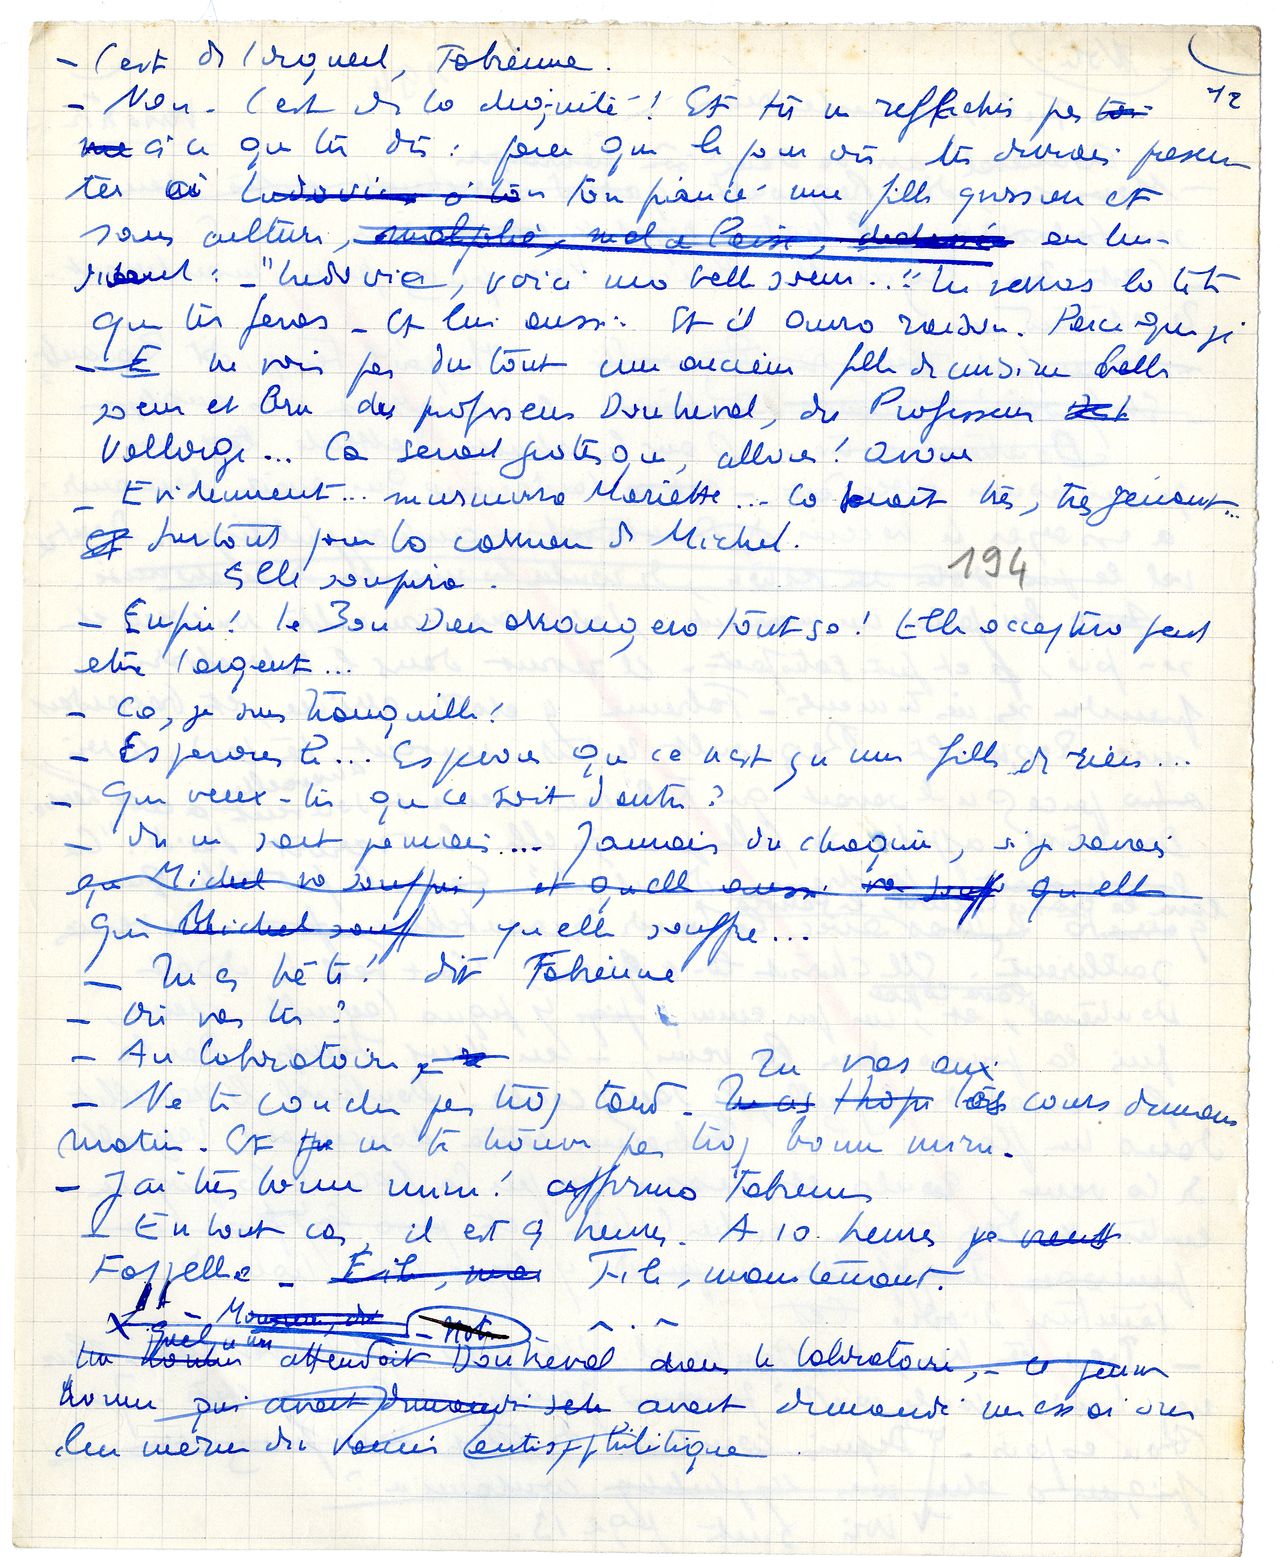 12
- C'est de l'orgueil, Fabienne.
- Non. C'est de la dignité! Et tu ne réfléchis pas
à ce que tu dis : parce que le jour où tu devrais présen
ter à Ludovic à ton fiancé une fille grossière et
sans culture, en lui
disant : - "Ludovic, voici ma belle sœur..." Tu verras la tête
que tu feras - Et lui aussi. Et il aura raison. Parce que je
ne vois pas du tout une ancienne fille de cuisine belle
sœur et bru des professeurs Doutreval, du Professeur
Vallorge... Ca serait grotesque, allons!
- Evidemment... murmura Mariette... Ca serait très, très gênant...
Et surtout pour la carrière de Michel.
194
Elle soupira.
- Enfin! Le Bon Dieu arrangera tout ça! Elle acceptera peut
être l'argent...
- Ca, je suis tranquille!
- Espérons le... Espérons que ce n'est qu'une fille de rien...
- Que veux-tu que ce soit d'autre?
- On ne sait jamais.... J'aurais du chagrin, si je savais
que Michel va souffrir, et qu'elle aussi va souff qu'elle
que Michel souff qu'elle souffre...
- Tu es bête! dit Fabienne
- Où vas tu?
- Au laboratoire,
Tu vas aux
- Ne te couche pas trop tard - Tu as l'hôpi tes cours demain
matin. Et je ne te trouve pas trop bonne mine.
- J'ai très bonne mine! affirma Fabienne
- En tout cas, il est 9 heures. A 10 heures je veux
t'appelle - File, ma File, maintenant.
Quelqu'un
Un homme attendait Doutreval dans le laboratoire, - ce jeune
homme qui avait demandé avait demandé un essai sur
lui même du vaccin antisyphilitique.